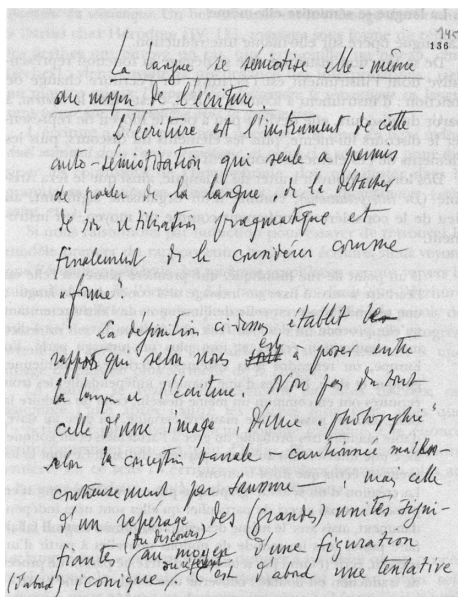 145
136
La langue se sémiotise elle-même
au moyen de l'écriture.
L'écriture est l'instrument de cette
auto-sémiotisation qui seule a permis
de parler de la langue, de la détacher
de son utilisation pragmatique et
finalement de la considérer comme
"forme".
La définition ci-dessus établit le
rapport qui selon nous est à poser entre
la langue et l'écriture. Non pas du tout
celle d'une image, d'une "photographie"
selon la conception banale – cautionnée malen-
contreusement par Saussure – ; mais celle
d'un repérage des (grandes) unités signi-
fiantes (du discours) au moyen d'une figuration
(d'abord) iconique. C'est d'abord une tentative